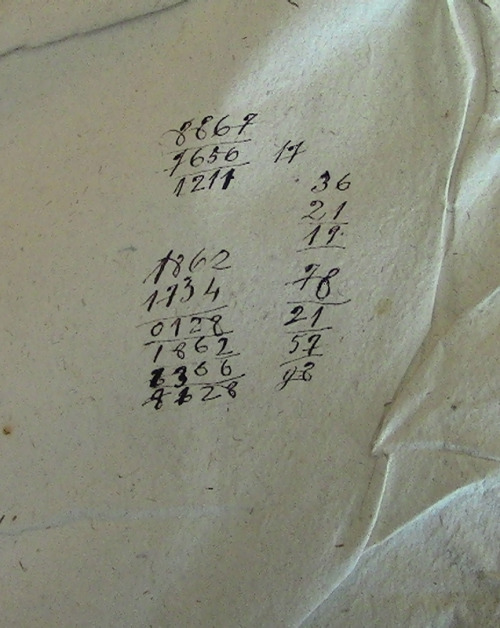 8867
7656 17
1211
36
21
19
1862
1734
0128
1862
6366
8128
78
21
57
98